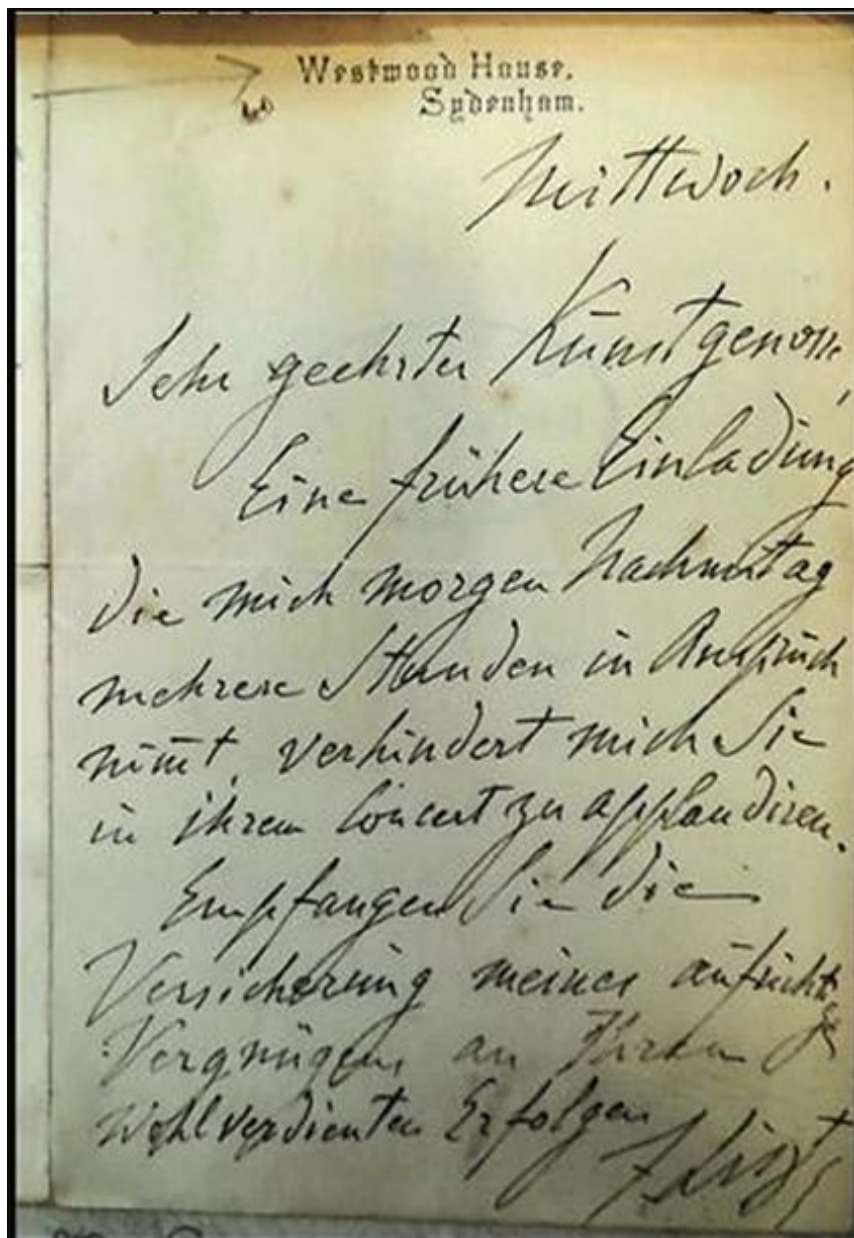 Westwood House,
Sydenham.
Mittwoch.
Sehr geehrter Kunstgenosse,
Eine frühere Einladung
die mich morgen Nachmittag
mehrere Stunden in Anspruch
nim̄t, verhindert mich Sie
in ihrem Concert zu applaudiren.
Empfangen Sie die
Versicherung meines aufrichtigen
Vergnügens an Ihren
wohlverdienten Erfolgen
F. Liszt